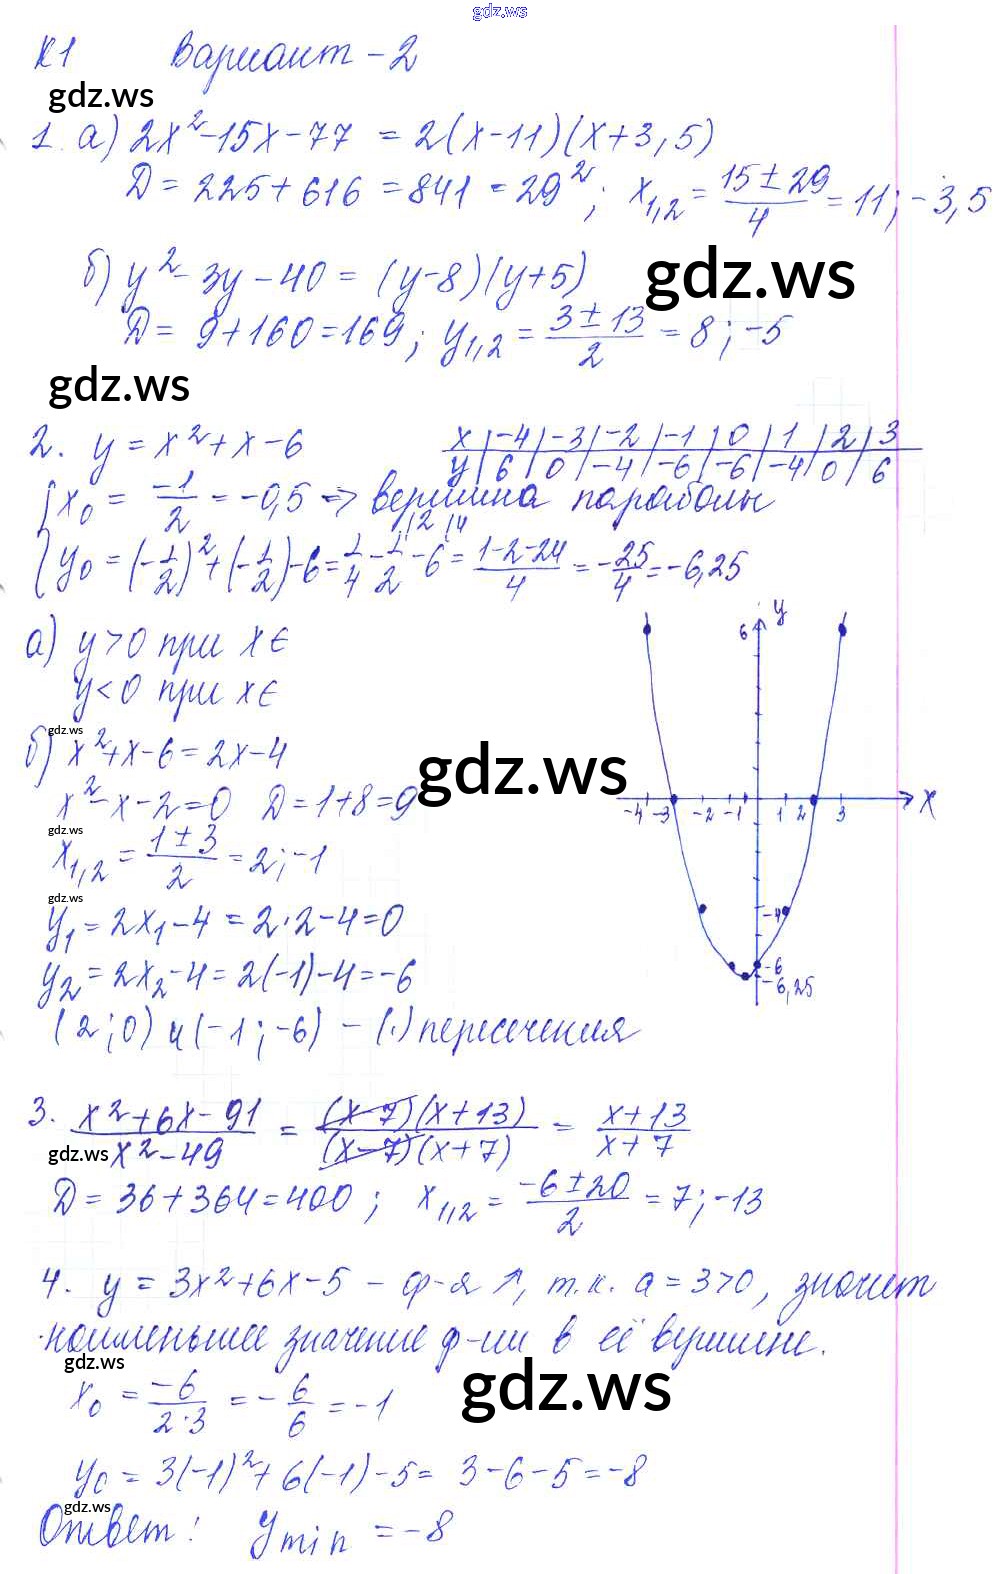 gdz.ws
К1 Вариант -2
gdz.ws
1. а) 2x² - 15x - 77 = 2(x - 11)(x + 3,5)
Д = 225 + 616 = 841 = 29²; x₁,₂ = (15 ± 29)/4 = 11; -3,5
б) y² - 3y - 40 = (y - 8)(y + 5)
gdz.ws
Д = 9 + 160 = 169; y₁,₂ = (3 ± 13)/2 = 8; -5
gdz.ws
2. y = x² + x - 6
x | -4 | -3 | -2 | -1 | 0 | 1 | 2 | 3
y | 6 | 0 | -4 | -6 | -6 | -4 | 0 | 6
{ x₀ = -1/2 = -0,5 => вершина параболы
y₀ = (-1/2)² + (-1/2) - 6 = 1/4 - 1/2 - 6 = (1 - 2 - 24)/4 = -25/4 = -6,25
а) y > 0 при x ∈
y < 0 при x ∈
gdz.ws
б) x² + x - 6 = 2x - 4
gdz.ws
x² - x - 2 = 0 Д = 1 + 8 = 9
gdz.ws
x₁,₂ = (1 ± 3)/2 = 2; -1
gdz.ws
y₁ = 2x₁ - 4 = 2·2 - 4 = 0
y₂ = 2x₂ - 4 = 2(-1) - 4 = -6
(2; 0) и (-1; -6) - (·) пересечения
y
6
-4 -3 -2 -1 1 2 3 x
-4
-6
-6,25
3. (x² + 6x - 91)/(x² - 49) = ((x - 7)(x + 13))/((x - 7)(x + 7)) = (x + 13)/(x + 7)
gdz.ws
Д = 36 + 364 = 400; x₁,₂ = (-6 ± 20)/2 = 7; -13
4. y = 3x² + 6x - 5 - ф-я ↑, т.к. a = 3 > 0, значит
наименьшее значение ф-ии в её вершине.
gdz.ws
gdz.ws
x₀ = -6/(2·3) = -6/6 = -1
y₀ = 3(-1)² + 6(-1) - 5 = 3 - 6 - 5 = -8
gdz.ws
Ответ: y min = -8